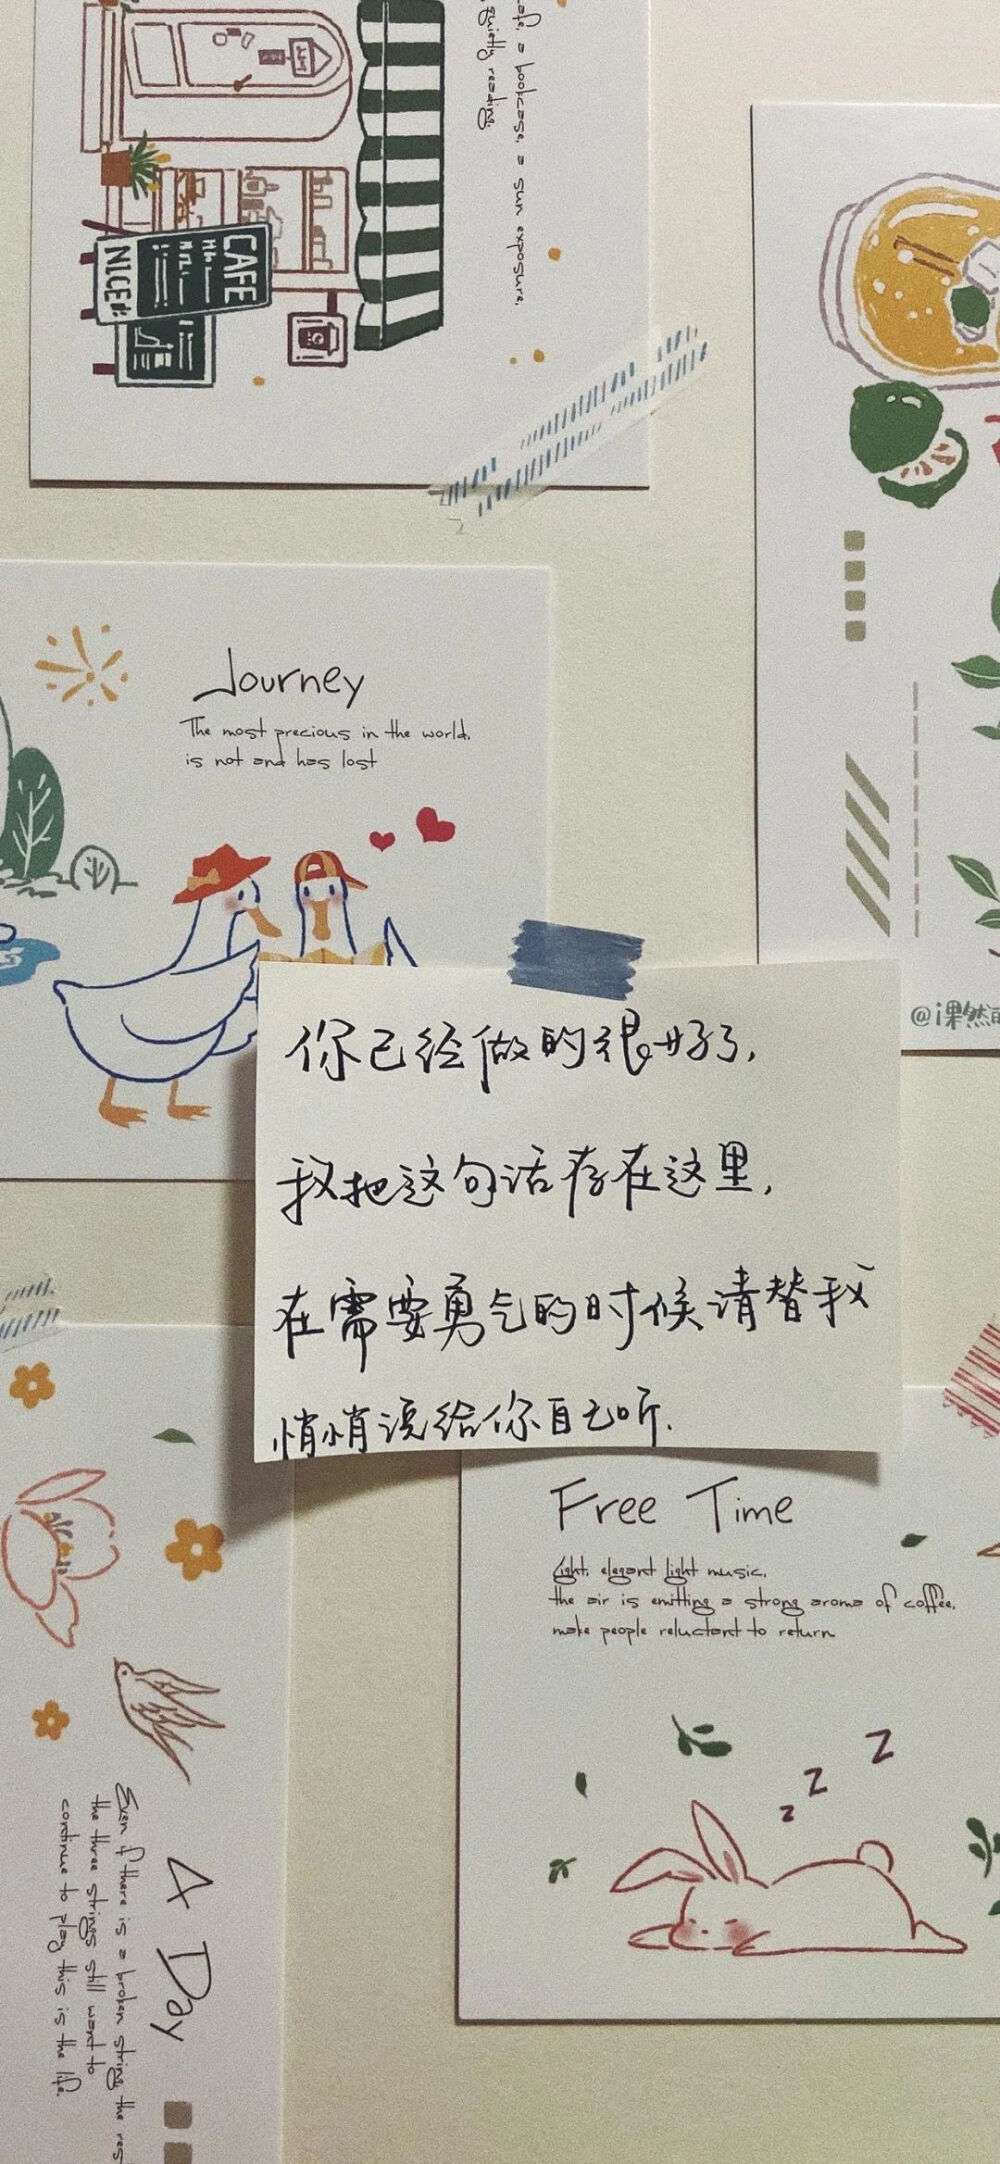 a bookcase, a sun exposure,
quietly reading.
CAFE
NICE
Journey
The most precious in the world,
is not and has lost
@i果然
你已经做的很好了,
我把这句话存在这里,
在需要勇气的时候请替我
悄悄说给你自己听.
Free Time
Light, elegant light music,
the air is emitting a strong aroma of coffee,
make people reluctant to return
z
z
z
A Day
Even if there is a broken string, the res
the three strings still want to
continue to play, this is the life.